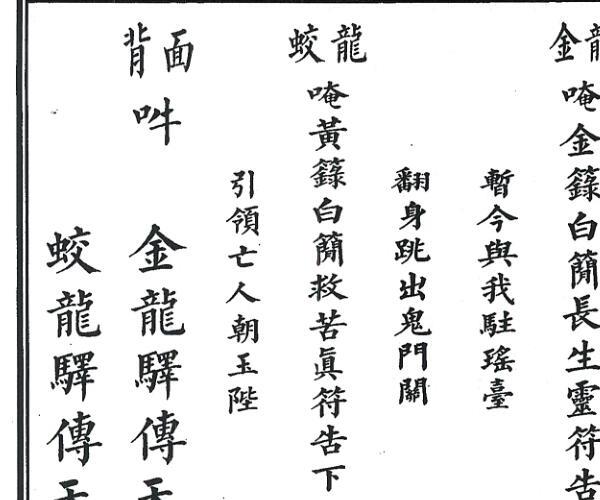 金龍
唵金籙白簡長生靈符告
暫今與我駐瑤臺
翻身跳出鬼門關
蛟龍
唵黃籙白簡救苦眞符告下
引領亡人朝玉陛
背面
吽
金龍驛傳
蛟龍驛傳